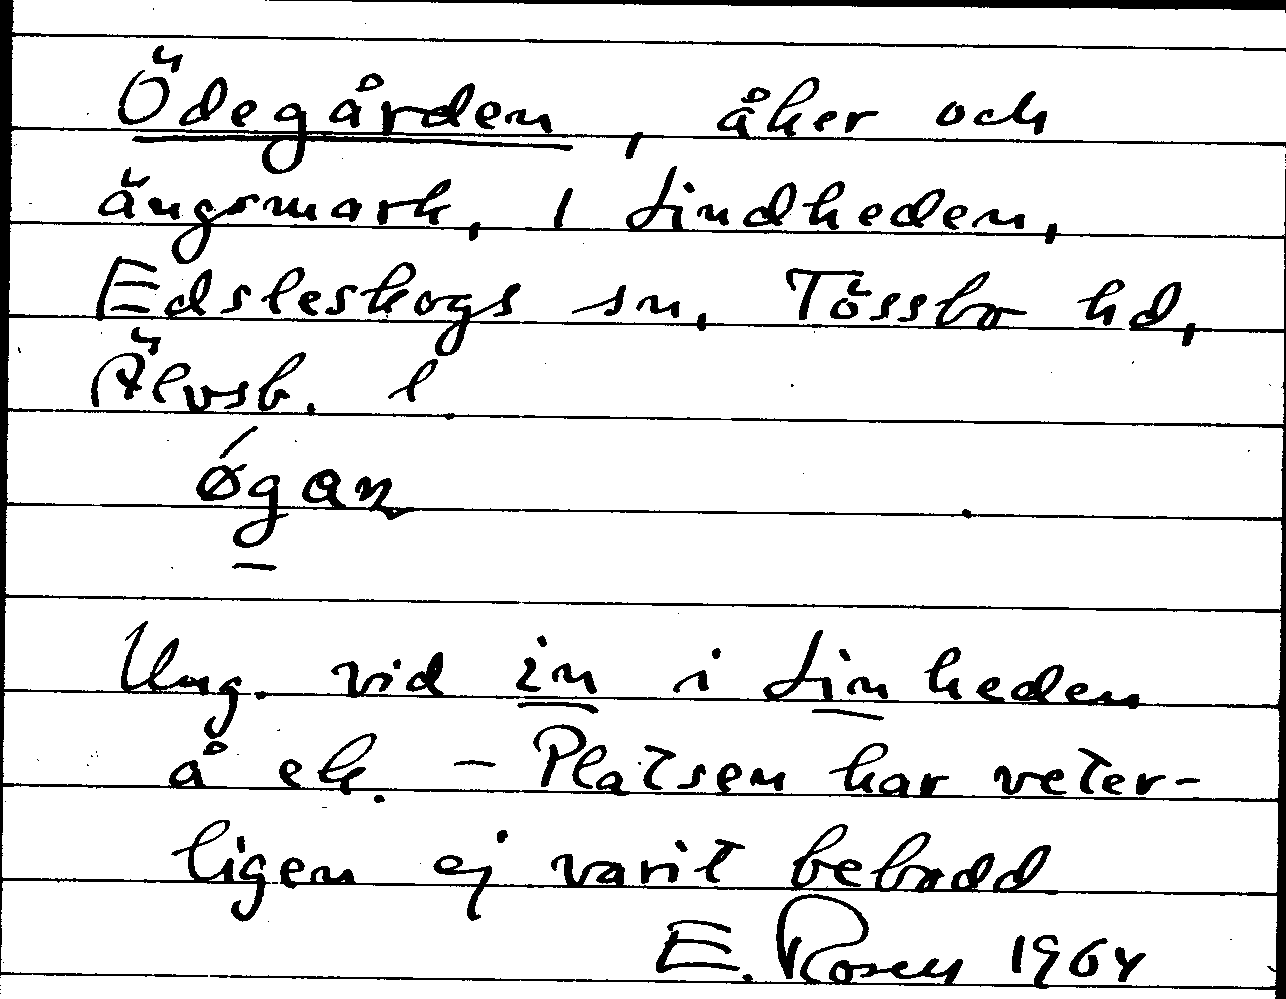 Ödegården, åker och
ängsmark, 1 Lindheden,
Edsleskogs sn, Tössbo hd,
Älvsb. l.
ǿgan
Ung. vid in i Linheden
å ek. – Platsen har veter-
ligen ej varit bebodd
E. Rosen 1964